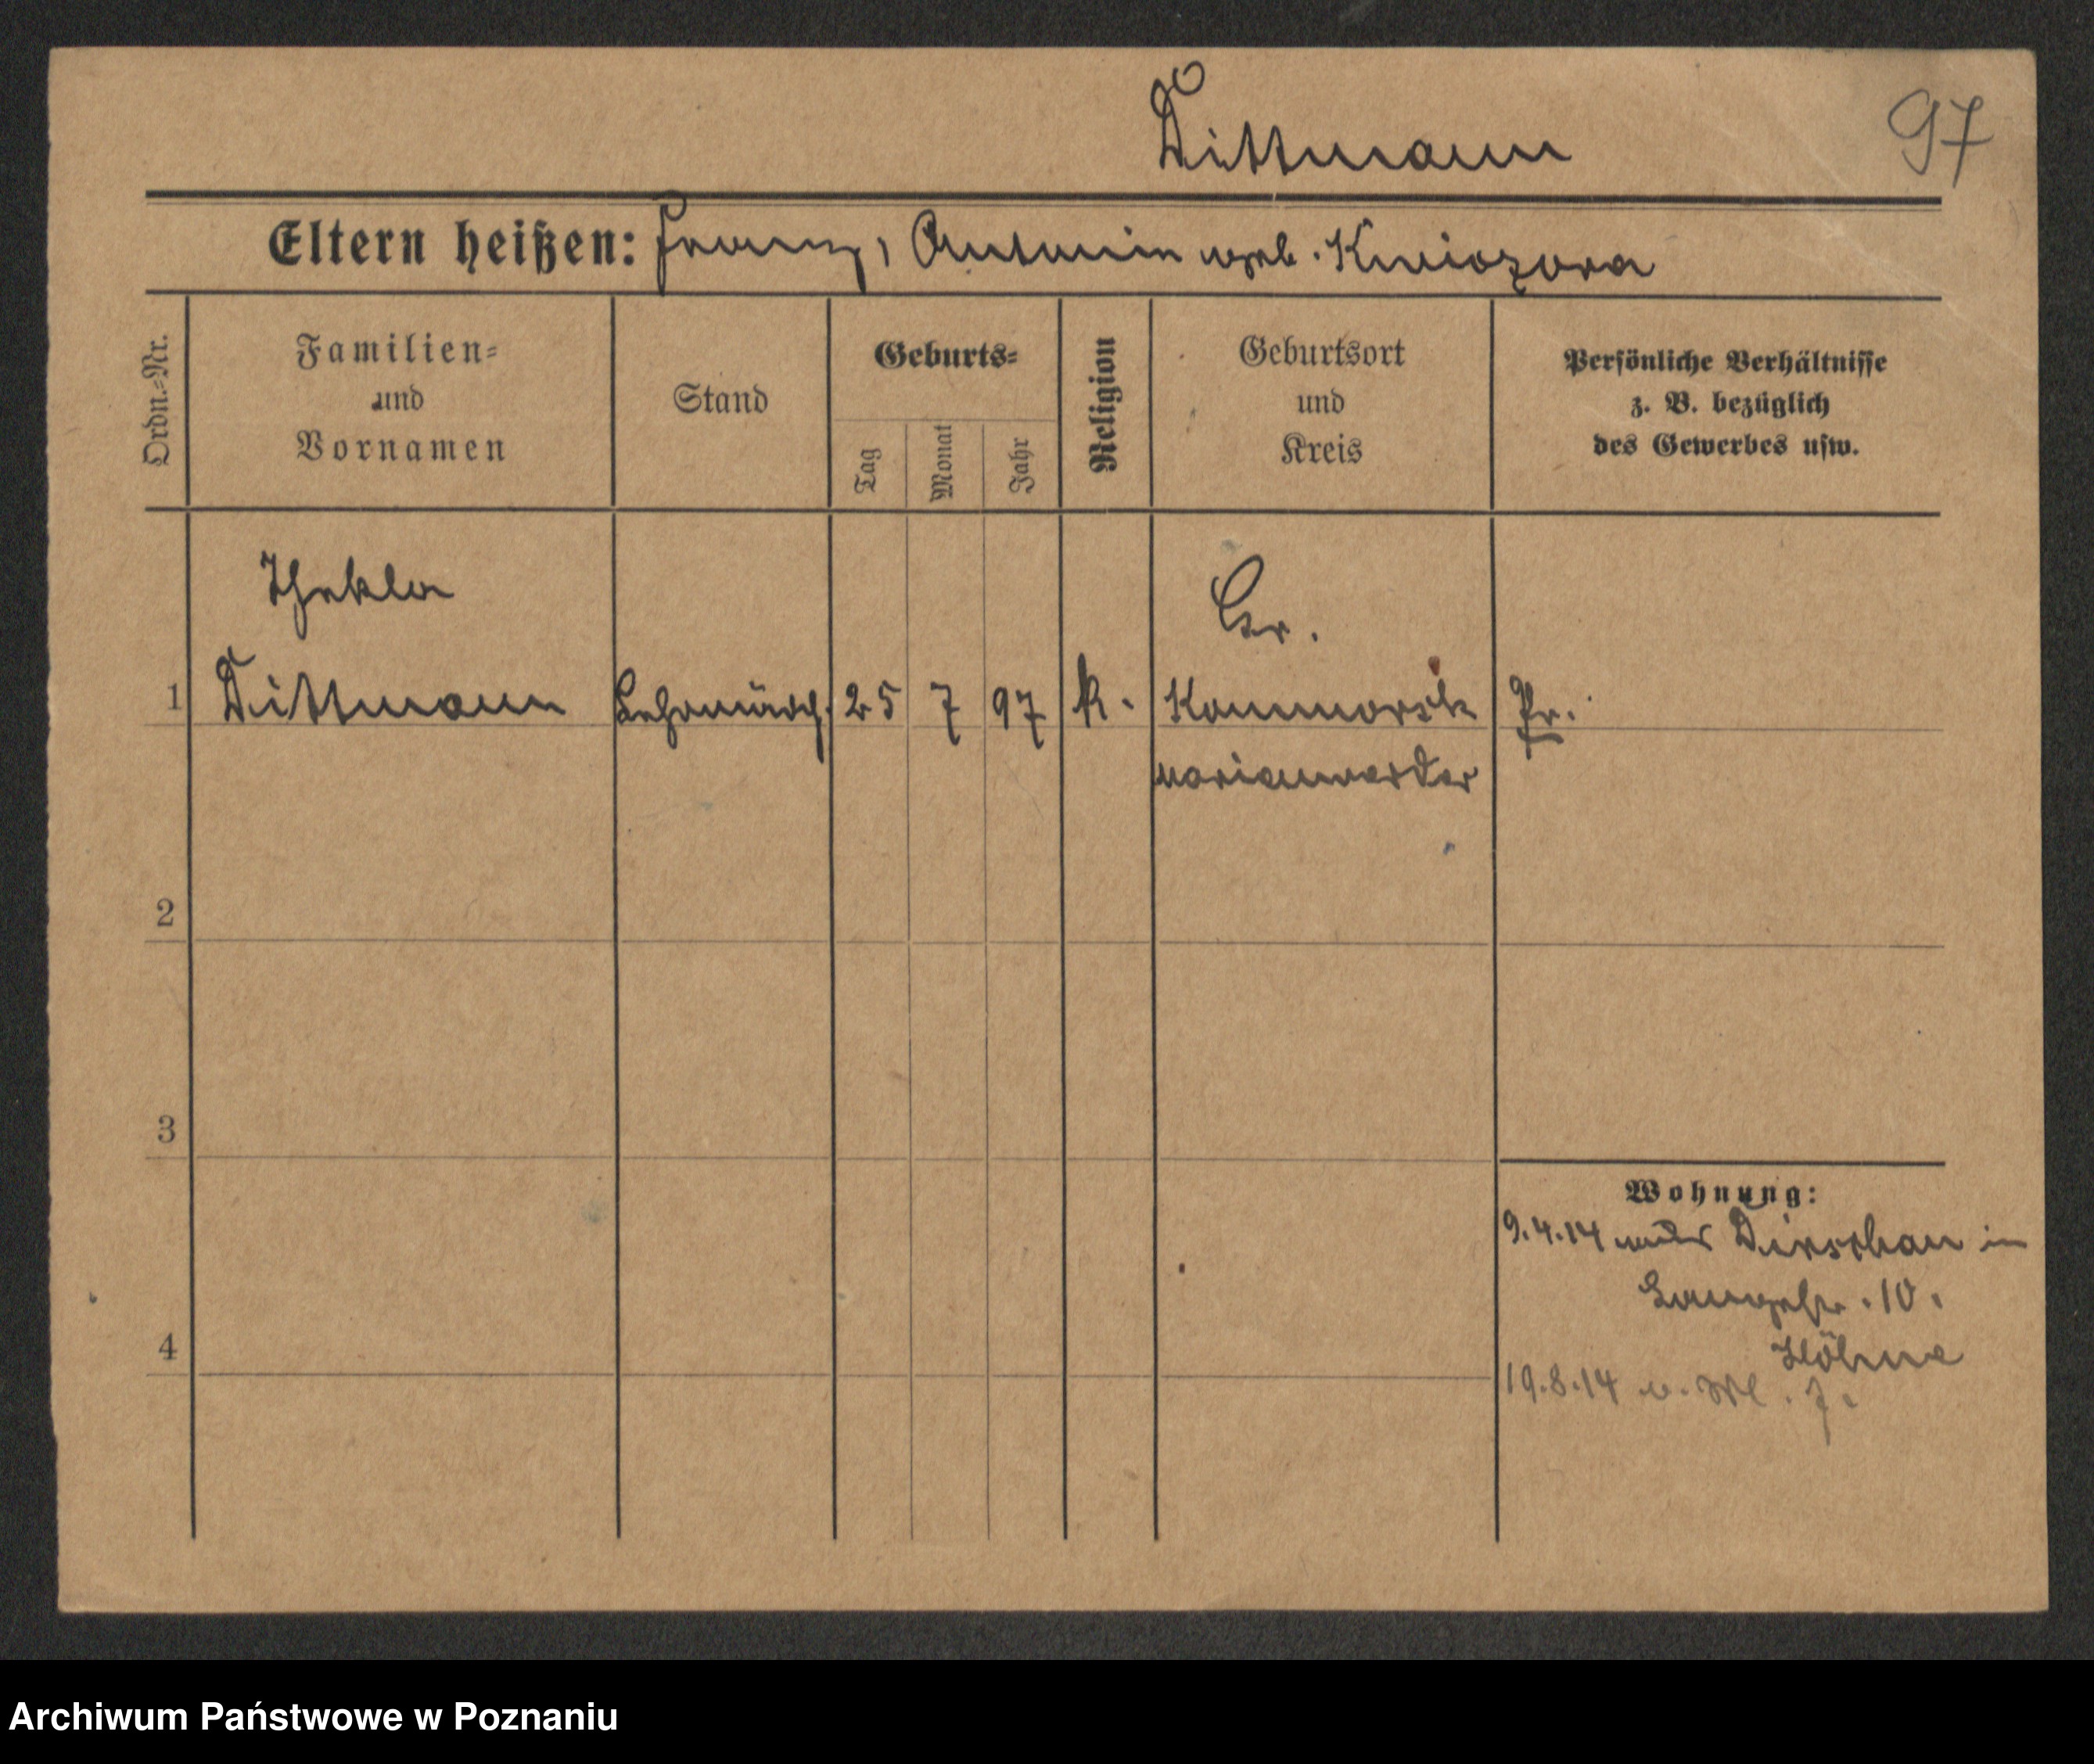 Dittmann
97
Eltern heißen: Franz, Antonie geb. Kwiozora
Ordn.-Nr.
Familien-
und
Vornamen
Stand
Geburts-
Tag
Monat
Jahr
Religion
Geburtsort
und
Kreis
Persönliche Verhältnisse
z. B. bezüglich
des Gewerbes usw.
Thekla
Gr.
1 Dittmann Lehrmädch. 25 7 97 k. Kommorsk Pr.
Marienwerder
2
3
Wohnung:
9.4.14 aus Dirschau in
Langestr. 10.
Höhne
4
19.8.14 v. Wl. 7.
Archiwum Państwowe w Poznaniu